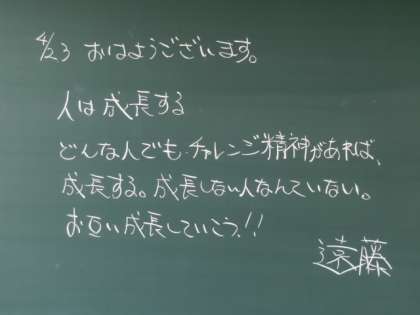 4/23 おはようございます。
人は成長する
どんな人でも、チャレンジ精神があれば、
成長する。成長しない人なんていない。
お互い成長していこう!!
遠藤